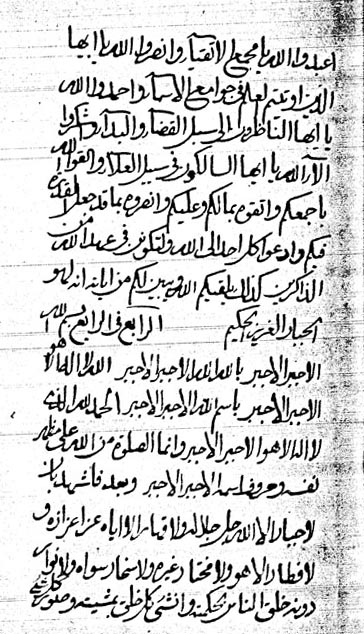 اعبدوا الله يا مجمع الاتقيآء وانصروا الله يا ايها
الذين اوتيتم العلم في جوامع الاسمآء واحمدوا الله
يا ايها الناظرون الى سبل القضآء والبدآء واشكروا
الآء الله يا ايها السالكون في سبيل العلآء
باجمعكم واتقوه بمالكم وعليكم وانصروه بما قد جعل الله
فيكم وادعوا كل احد الى الله ولتكونن في عهد الله من
الذاكرين كذلك يلقيكم الله ويبين لكم من اياته انه لهو
الجبار العزيز الحكيم الرابع في الرابع بسم الله
الاجبر الاجبر بالله الله الاجبر الاجبر الله لا اله الا هو
الاجبر الاجبر باسم الله الاجبر الاجبر الحمد لله الذي
لا اله الا هو الاجبر الاجبر وانما الصلوة من الله على مظهر
نفسه وحروف اسمه الاجبر الاجبر وبعد فاشهد بان
لا جبار الا الله جل جلاله ولا قهار الا اياه عز اعزازه و
لا هو ولا غيره ولا سواه ولا
دونه خلق الناس بحكمته وانشئ كل خلق بمشيته وخلق كل شئ